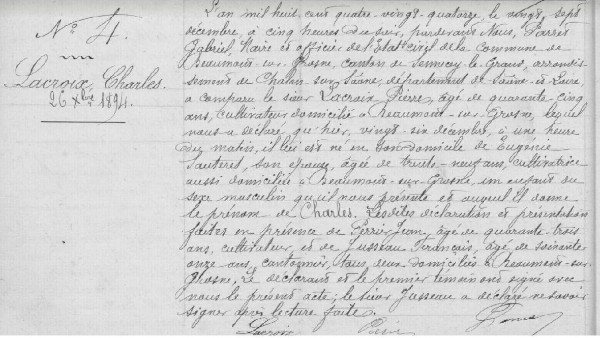 N° 4.
Lacroix, Charles.
26 Xbre 1894.
L'an mil huit cent quatre-vingt-quatorze le vingt sept
décembre, à cinq heures du soir, pardevant Nous,
Gabriel, Maire et officier de l'Etat civil de la Commune de
Beaumont-sur-Grosne, canton de Sennecey-le-Grand, arrondis-
sement de Chalon-sur-Saône, département de Saône-et-Loire,
a comparu le sieur Lacroix Pierre, âgé de quarante cinq
ans, cultivateur domicilié à Beaumont-sur-Grosne, lequel
nous a déclaré qu'hier, vingt-six décembre, à une heure
du matin, il lui est né en son domicile de Eugénie
son épouse, âgée de trente-neuf ans, cultivatrice
aussi domiciliée à Beaumont-sur-Grosne, un enfant du
sexe masculin qu'il nous présente et auquel il donne
le prénom de Charles. Lesdites déclaration et présentation
faites en présence de Perrin Jean, âgé de quarante-trois
ans, cultivateur, et de Jusseau François, âgé de soixante
onze ans, cantonnier, tous deux domiciliés à Beaumont-sur-
Grosne. Le déclarant et le premier témoin ont signé avec
nous le présent acte; le sieur Jusseau a déclaré ne savoir
signer après lecture faite.
Lacroix